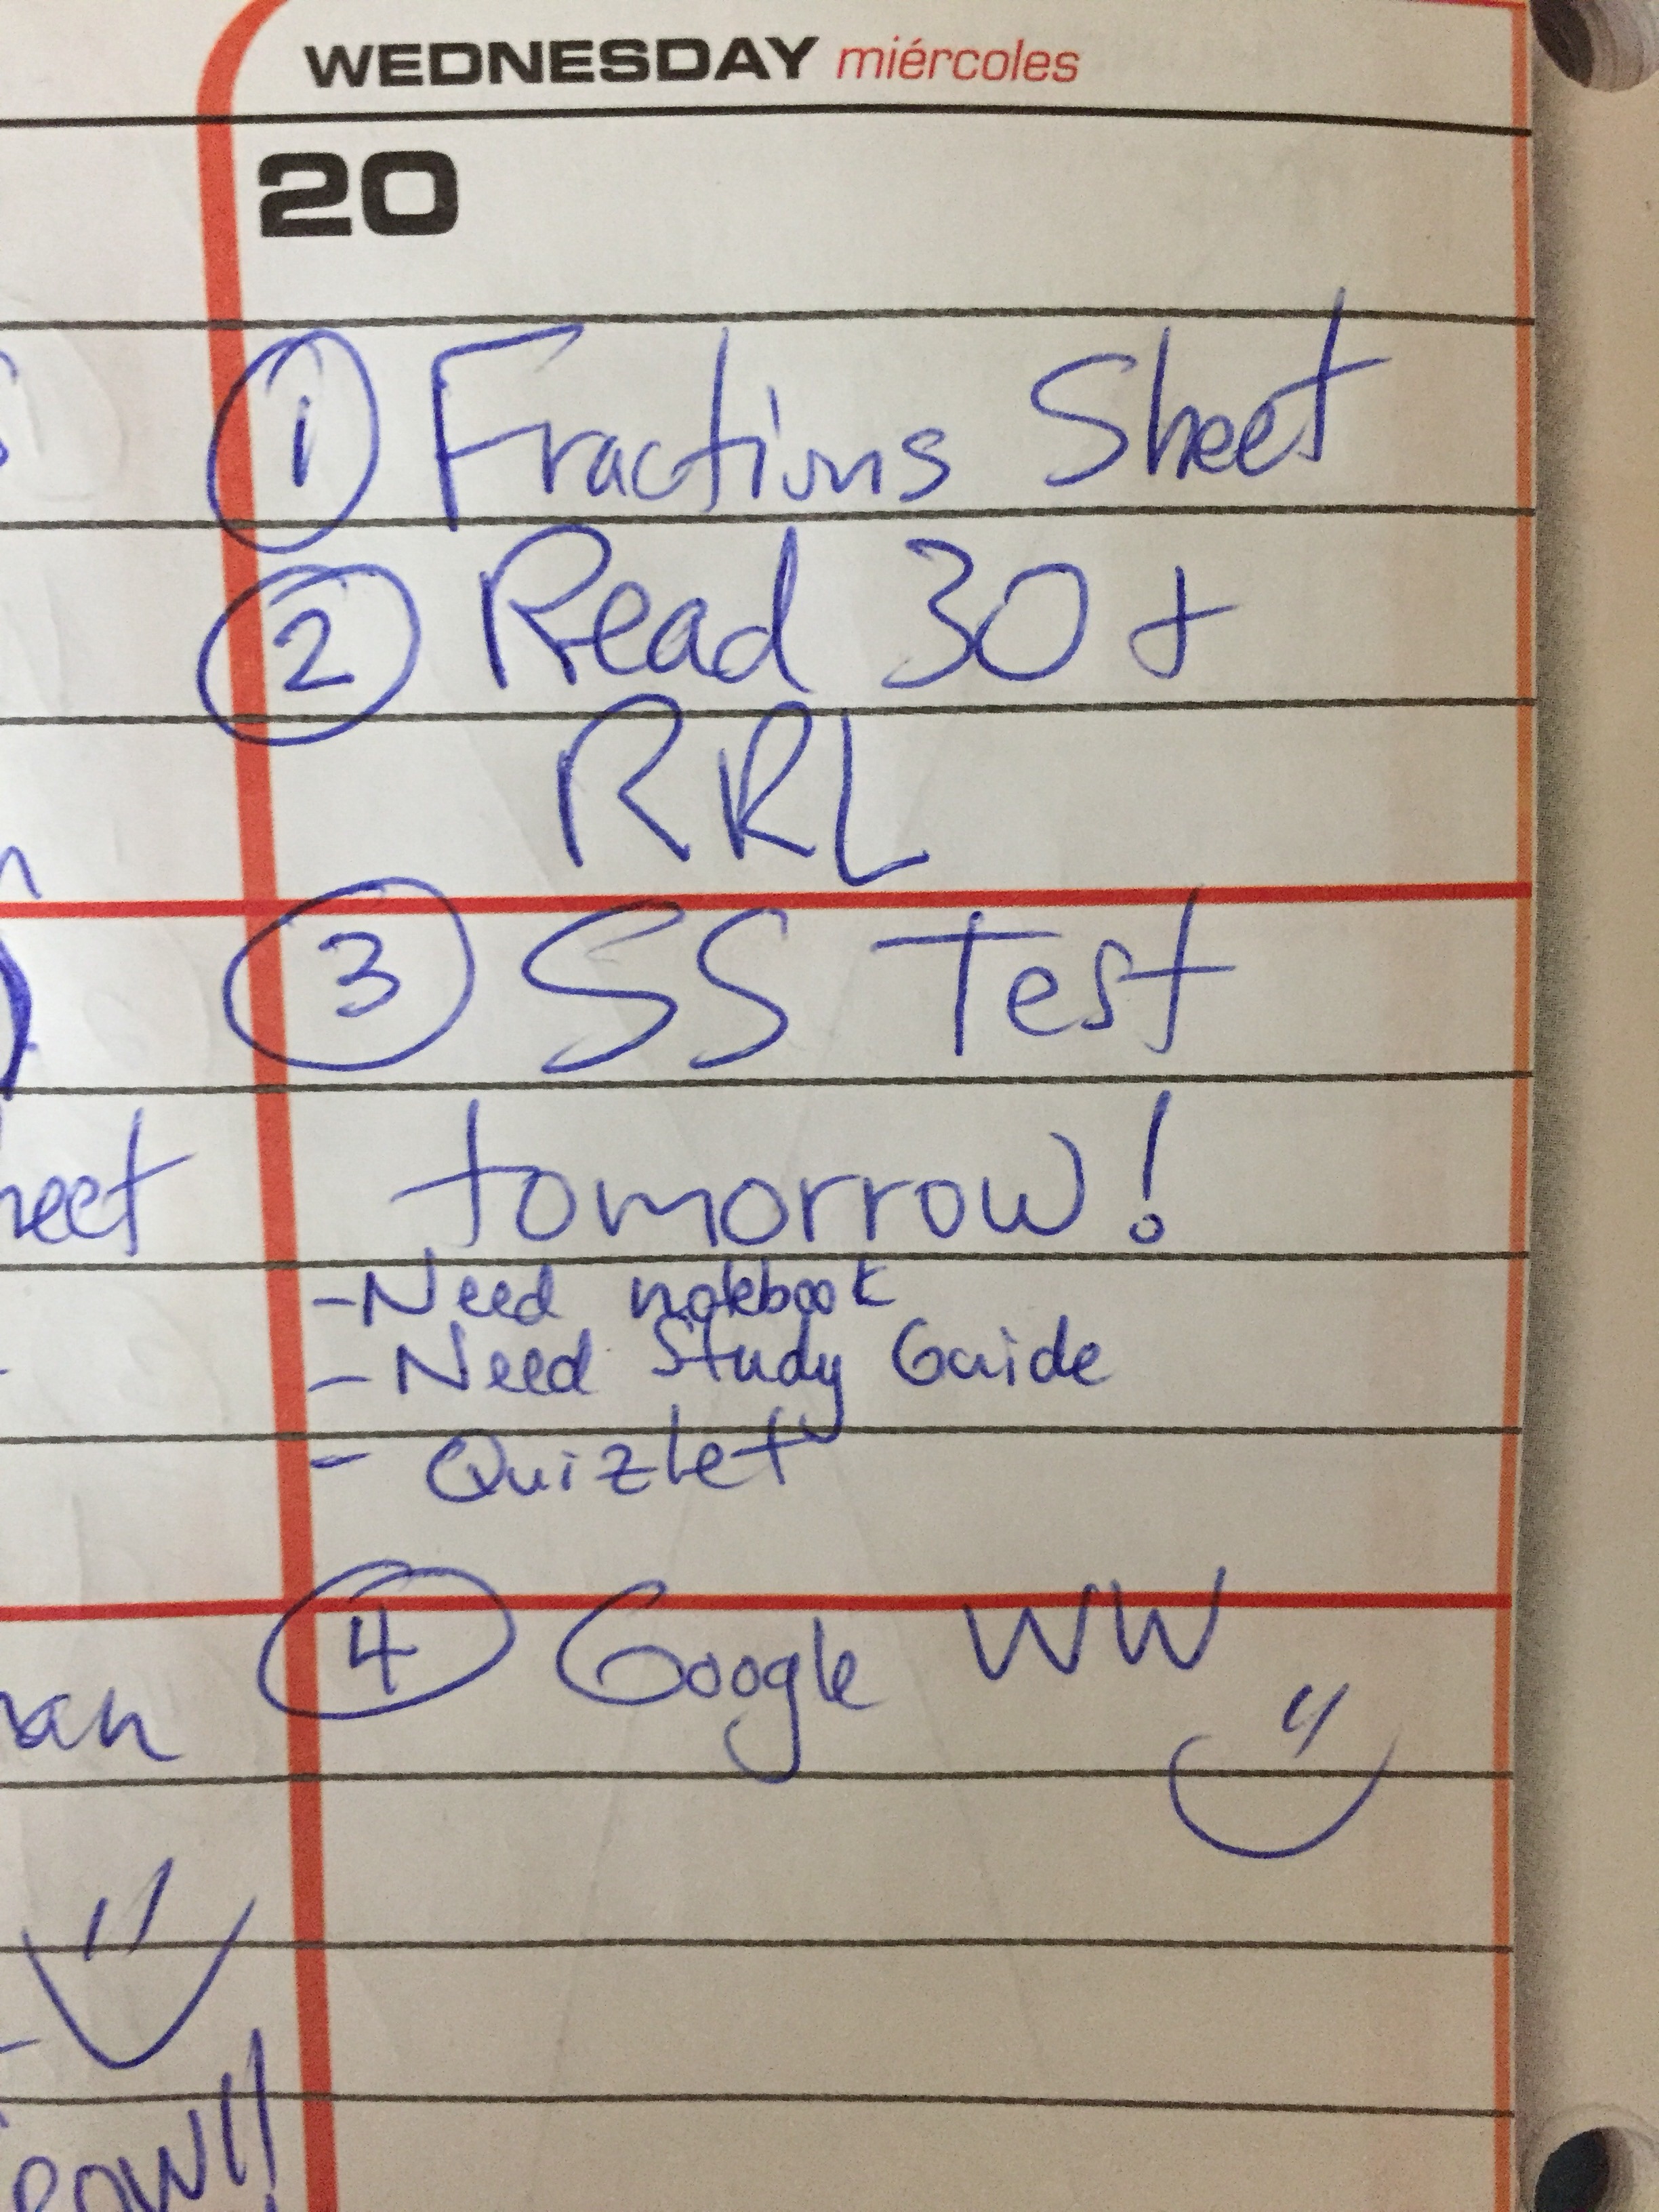 WEDNESDAY miércoles
20
1 Fractions Sheet
2 Read 30 +
RRL
3 SS Test
tomorrow!
- Need notebook
- Need Study Guide
- Quizlet
4 Google WW